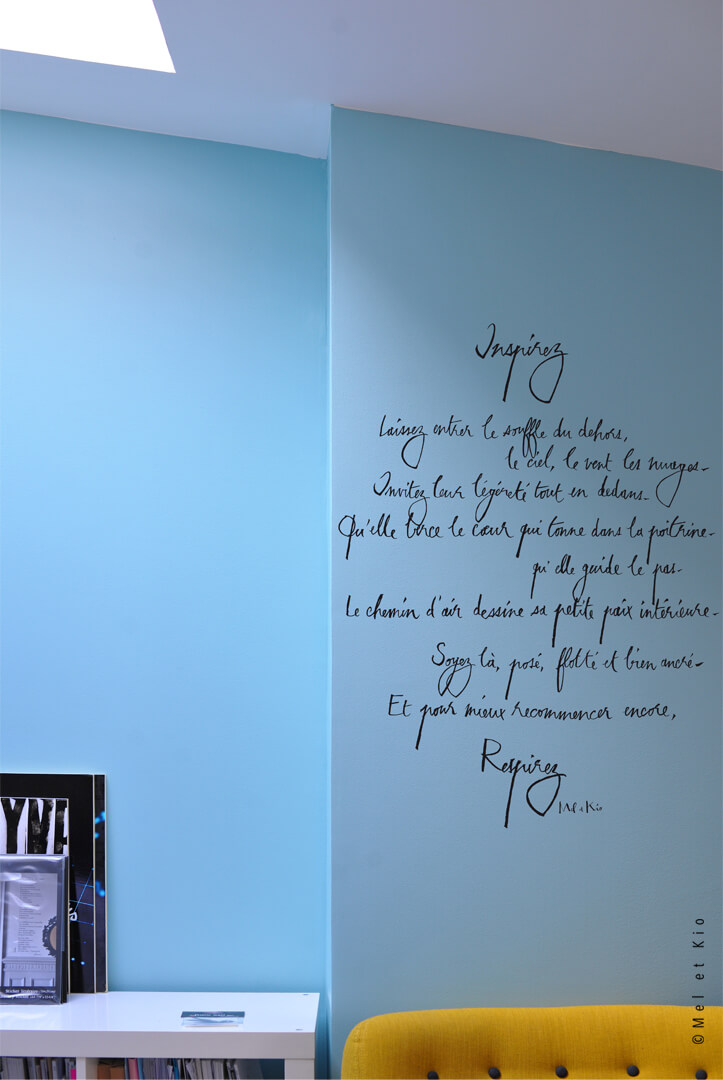 Inspirez
Laissez entrer le souffle du dehors,
le ciel, le vent les nuages_
Invitez leur légéreté tout en dedans_
Qu'elle berce le cœur qui tonne dans la poitrine_
qu'elle guide le pas_
Le chemin d'air dessine sa petite paix intérieure_
Soyez là, posé, flotté et bien ancré_
Et pour mieux recommencer encore,
Respirez
Mel & Kio
YNE
© Mel et Kio